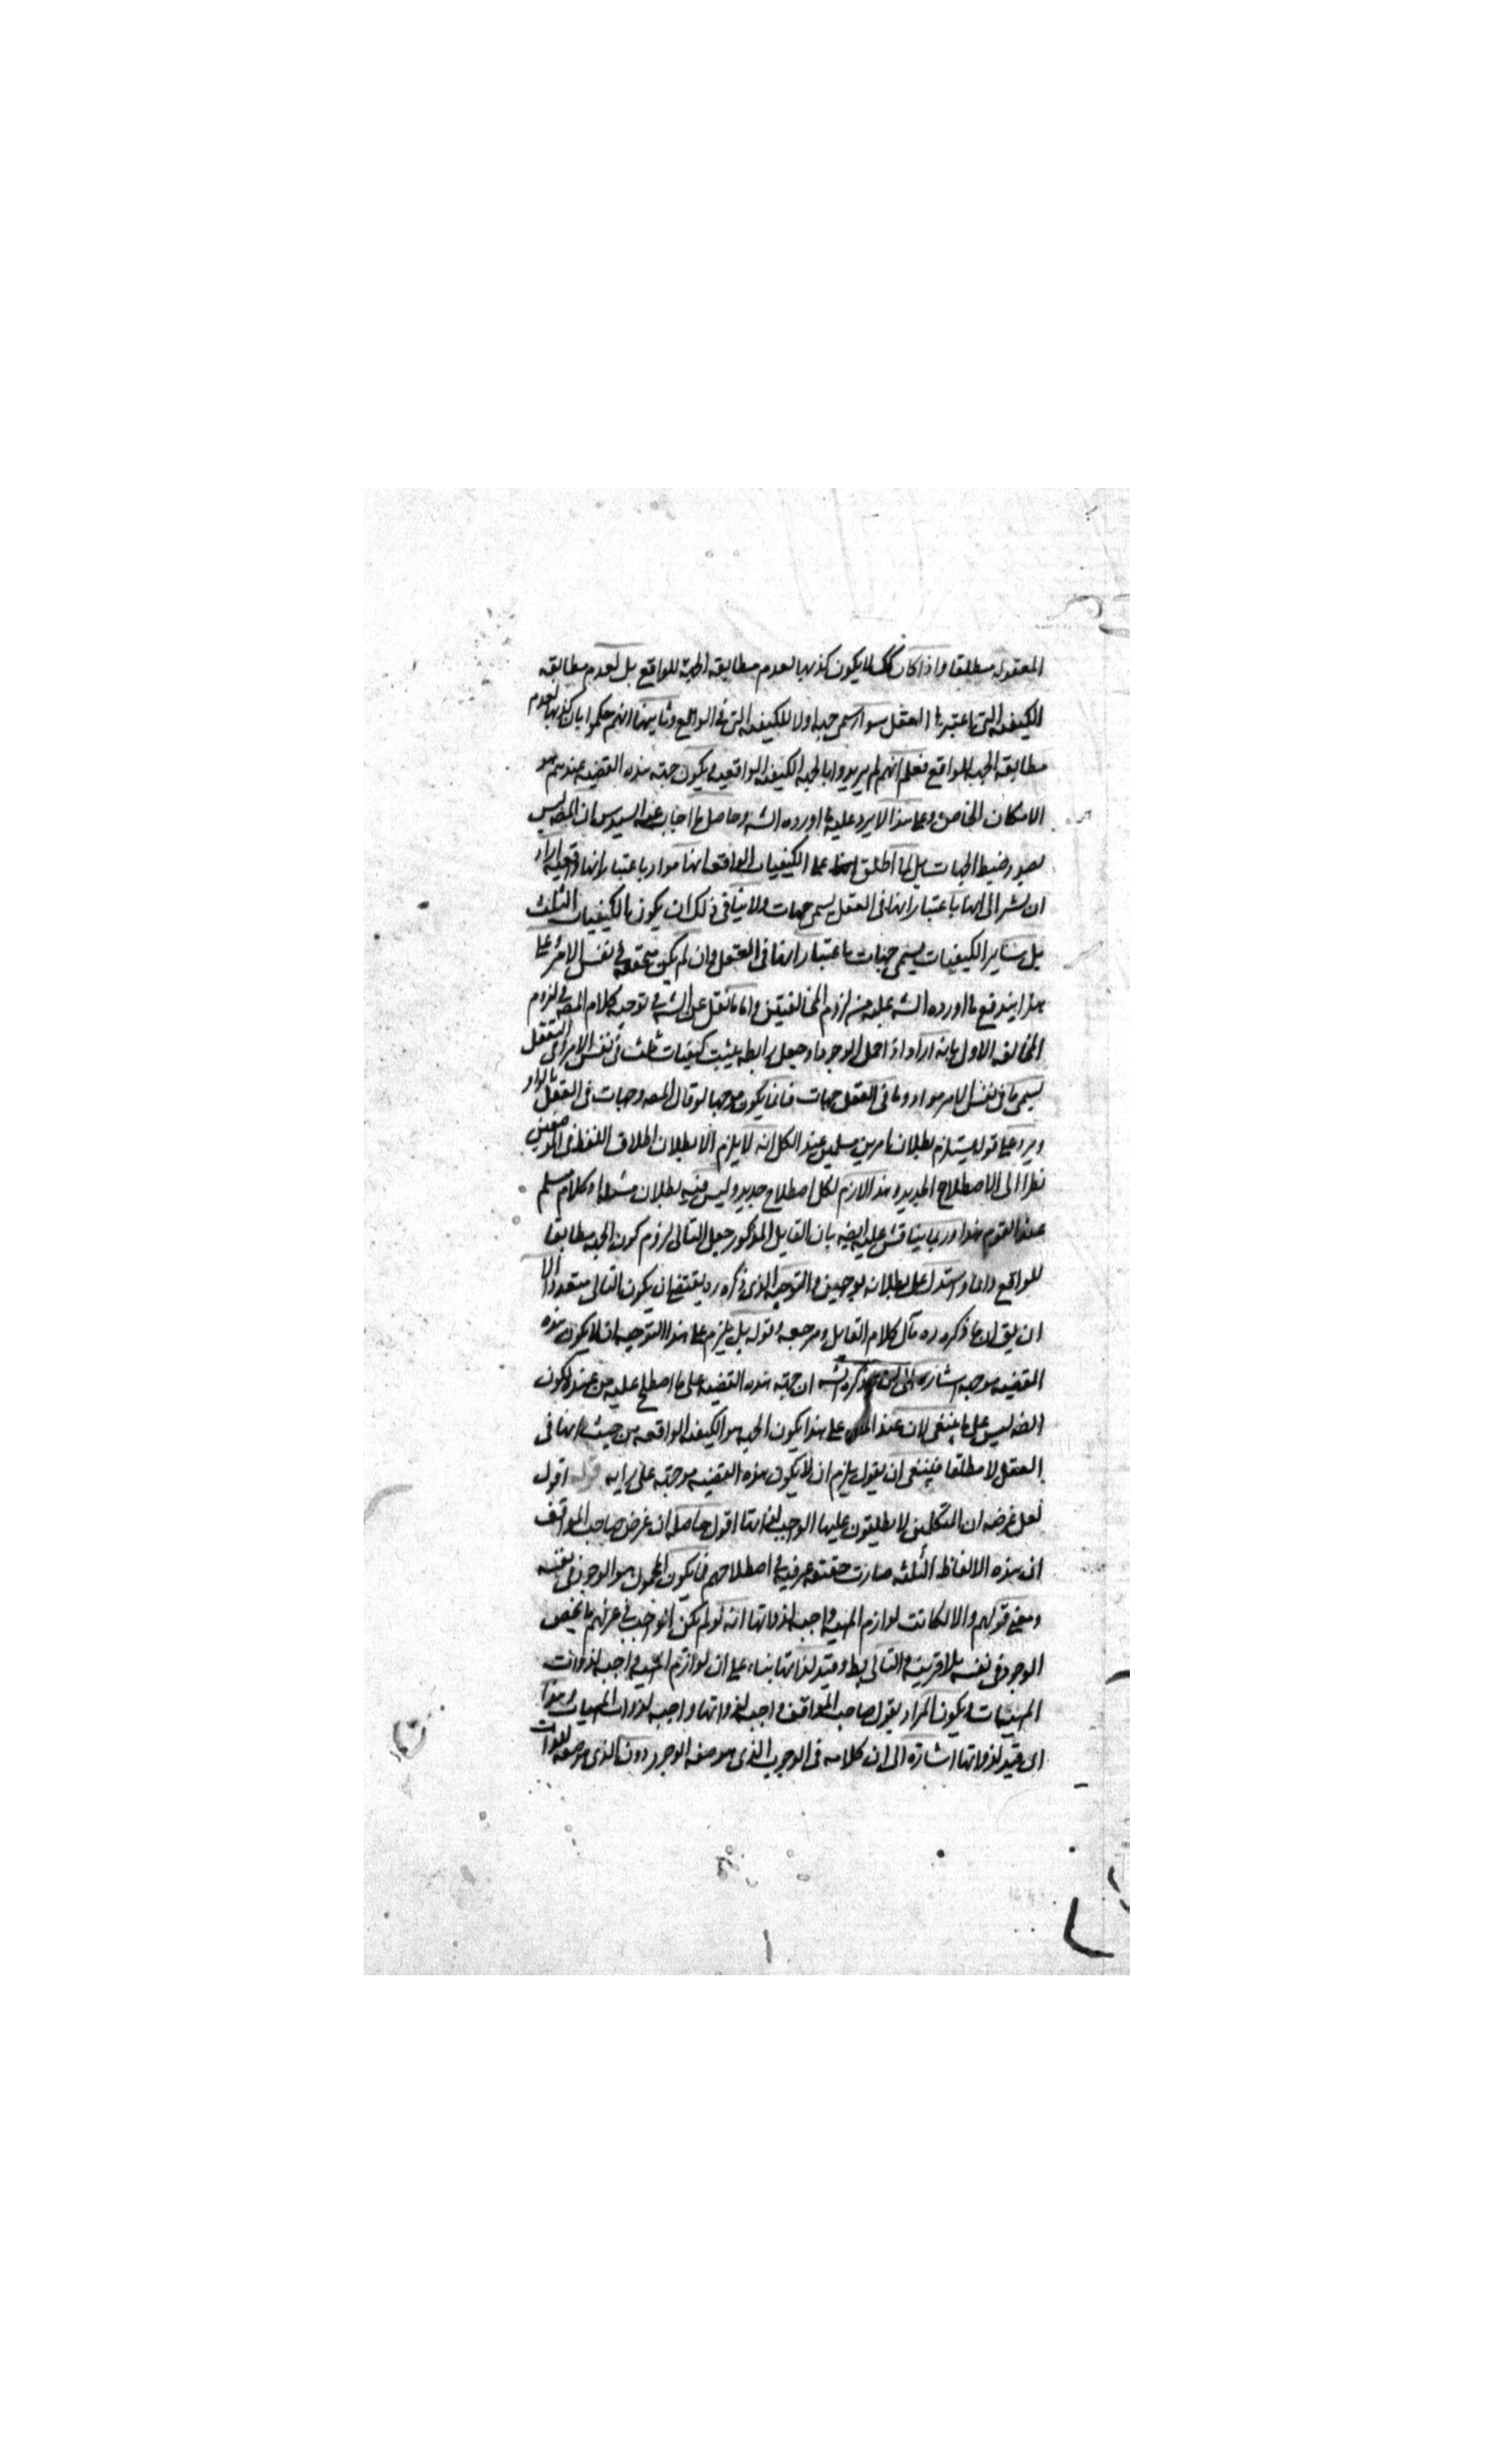 المعقولة مطلقا واذا كان كك لا يكون كذبها لعدم مطابقة الجهة للواقع بل لعدم مطابقة
الكيفية التى اعتبرها العقل سواء سمى جهة اولا للكيفية التى فى الواقع وثانيهما انهم حكموا بان كذبها لعدم
مطابقة الجهة للواقع فعلم انهم لم يريدوا بالجهة الكيفية الواقعية ويكون جهة هذه القضيه عندهم هو
الامكان الخاص وعلى هذا لا يرد عليه ما اورده الشه وحاصل ما اجاب عنه السيد س ان المصه ليس
بصدد ضبط الجهات بل لما اطلق على الكيفيات الواقعة انها مواد باعتبار انها واقعية اراد
ان يشير الى انها باعتبار انها فى العقل يسمى جهات ولا ينافى ذلك ان يكون ما الكيفيات الثلث
بل سائر الكيفيات يسمى جهات باعتبار انها فى العقل وان لم يكن متحققة فى نفس الامر على
هذا يندفع ما اورده الشه عليه من لزوم المخالفتين واما ما نقل عن الشه فى توجيه كلام المصه فى لزوم
المخالفة الاول بانه اراد اذا حمل الوجود او جعل رابطة يثبت كيفيات ثلث فى نفس الامر او فى التعقل
يسمى ما فى نفس الامر مواد وما فى العقل جهات فانما يكون موجها لو قال المصه وجهات فى العقل بالواو
ويرد على قوله يستلزم بطلان امرين مسلمين عند الكل انه لا يلزم الا بطلان اطلاق اللفظ فى الموضعين
نظرا الى الاصطلاح الجديد وهذا لازم لكل اصطلاح جديد وليس فيه بطلان مسئلة او كلام مسلم
عند القوم هذا وربما يناقش عليه ايضه بان القايل المذكور جعل التالى لزوم كون الجهة مطابقا
للواقع دائما واستدل على بطلانه بوجهين والتوجيه الذى ذكره ره يقتضى ان يكون التالى متعددا الا
ان يق ان ما ذكره ره مآل كلام القايل ومرجعه وقوله بل يلزم على هذا التوجيه ان لا يكون هذه
القضيه موجهه اشاره الى ان ما ذكره الشه ان جهة هذه القضيه على ما اصطلح عليه من عنده لا يكون
الضه ليس على ما ينبغى لان عند على هذا يكون الجهة هو الكيفية الواقعه من حيث انها فى
العقل لا مطلقا فينبغى ان يقول يلزم ان لا يكون هذه القضيه موجهة على رايه قوله اقول
لعل غرضه ان المتكلمين لا يطلقون عليها الواجب لذاتها اقول حاصله ان غرض صاحب المواقف
ان هذه الالفاظ الثلثه صارت حقيقة عرفية فى اصطلاحهم فيما يكون المحمول هو الوجود فى نفسه
ومعنى قولهم والا لكانت لوازم المهية واجبة لذواتها انه لو لم يكن الواجب فى عرفهم ما يخص
الوجود فى نفسه بلا قرينة والتالى بط وقيد لذاتها بناء على ان لوازم المهية واجبة لذوات
المهيات ويكون المراد بقول صاحب المواقف واجبة لذواتها واجبة لذوات المهيات وهذا
اى قيد لذواتها اشارة الى ان كلامه فى الوجوب الذى هو صفة الوجود دون الذى هو صفة للذات